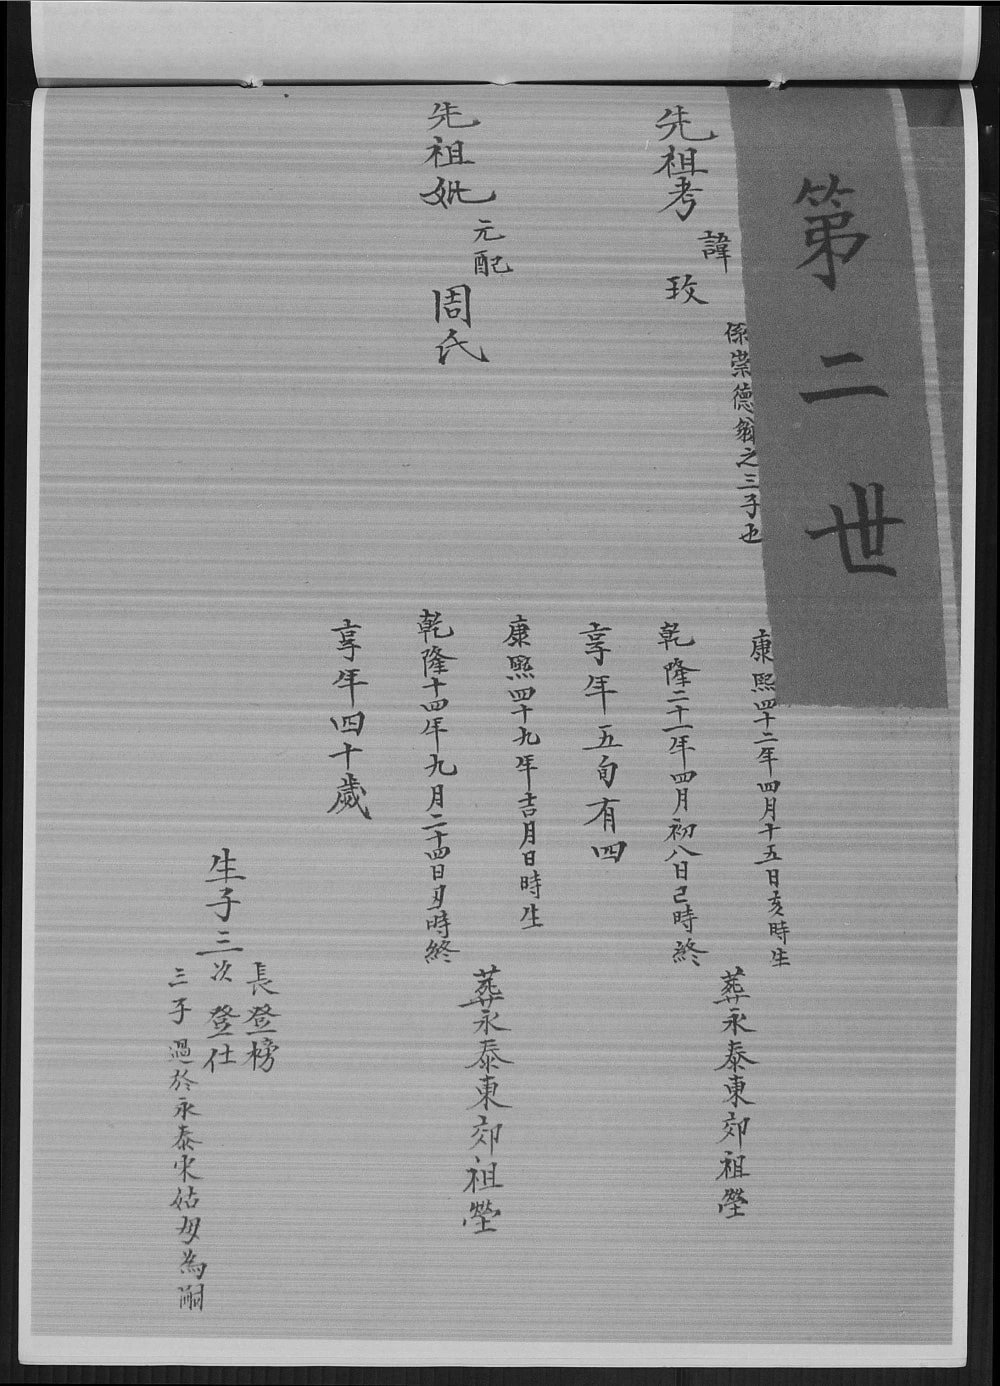 第二世
先祖考諱玫係崇德翁之三子也
康熙四十二年四月十五日亥時生
乾隆二十一年四月初八日己時終
葬永泰東郊祖塋
享年五旬有四
先祖妣元配周氏
康熙四十九年吉月日時生
乾隆十四年九月二十四日刃時終
葬永泰東郊祖塋
享年四十歲
生子三
長登榜
次登仕
三子過於永泰宋姑母為嗣